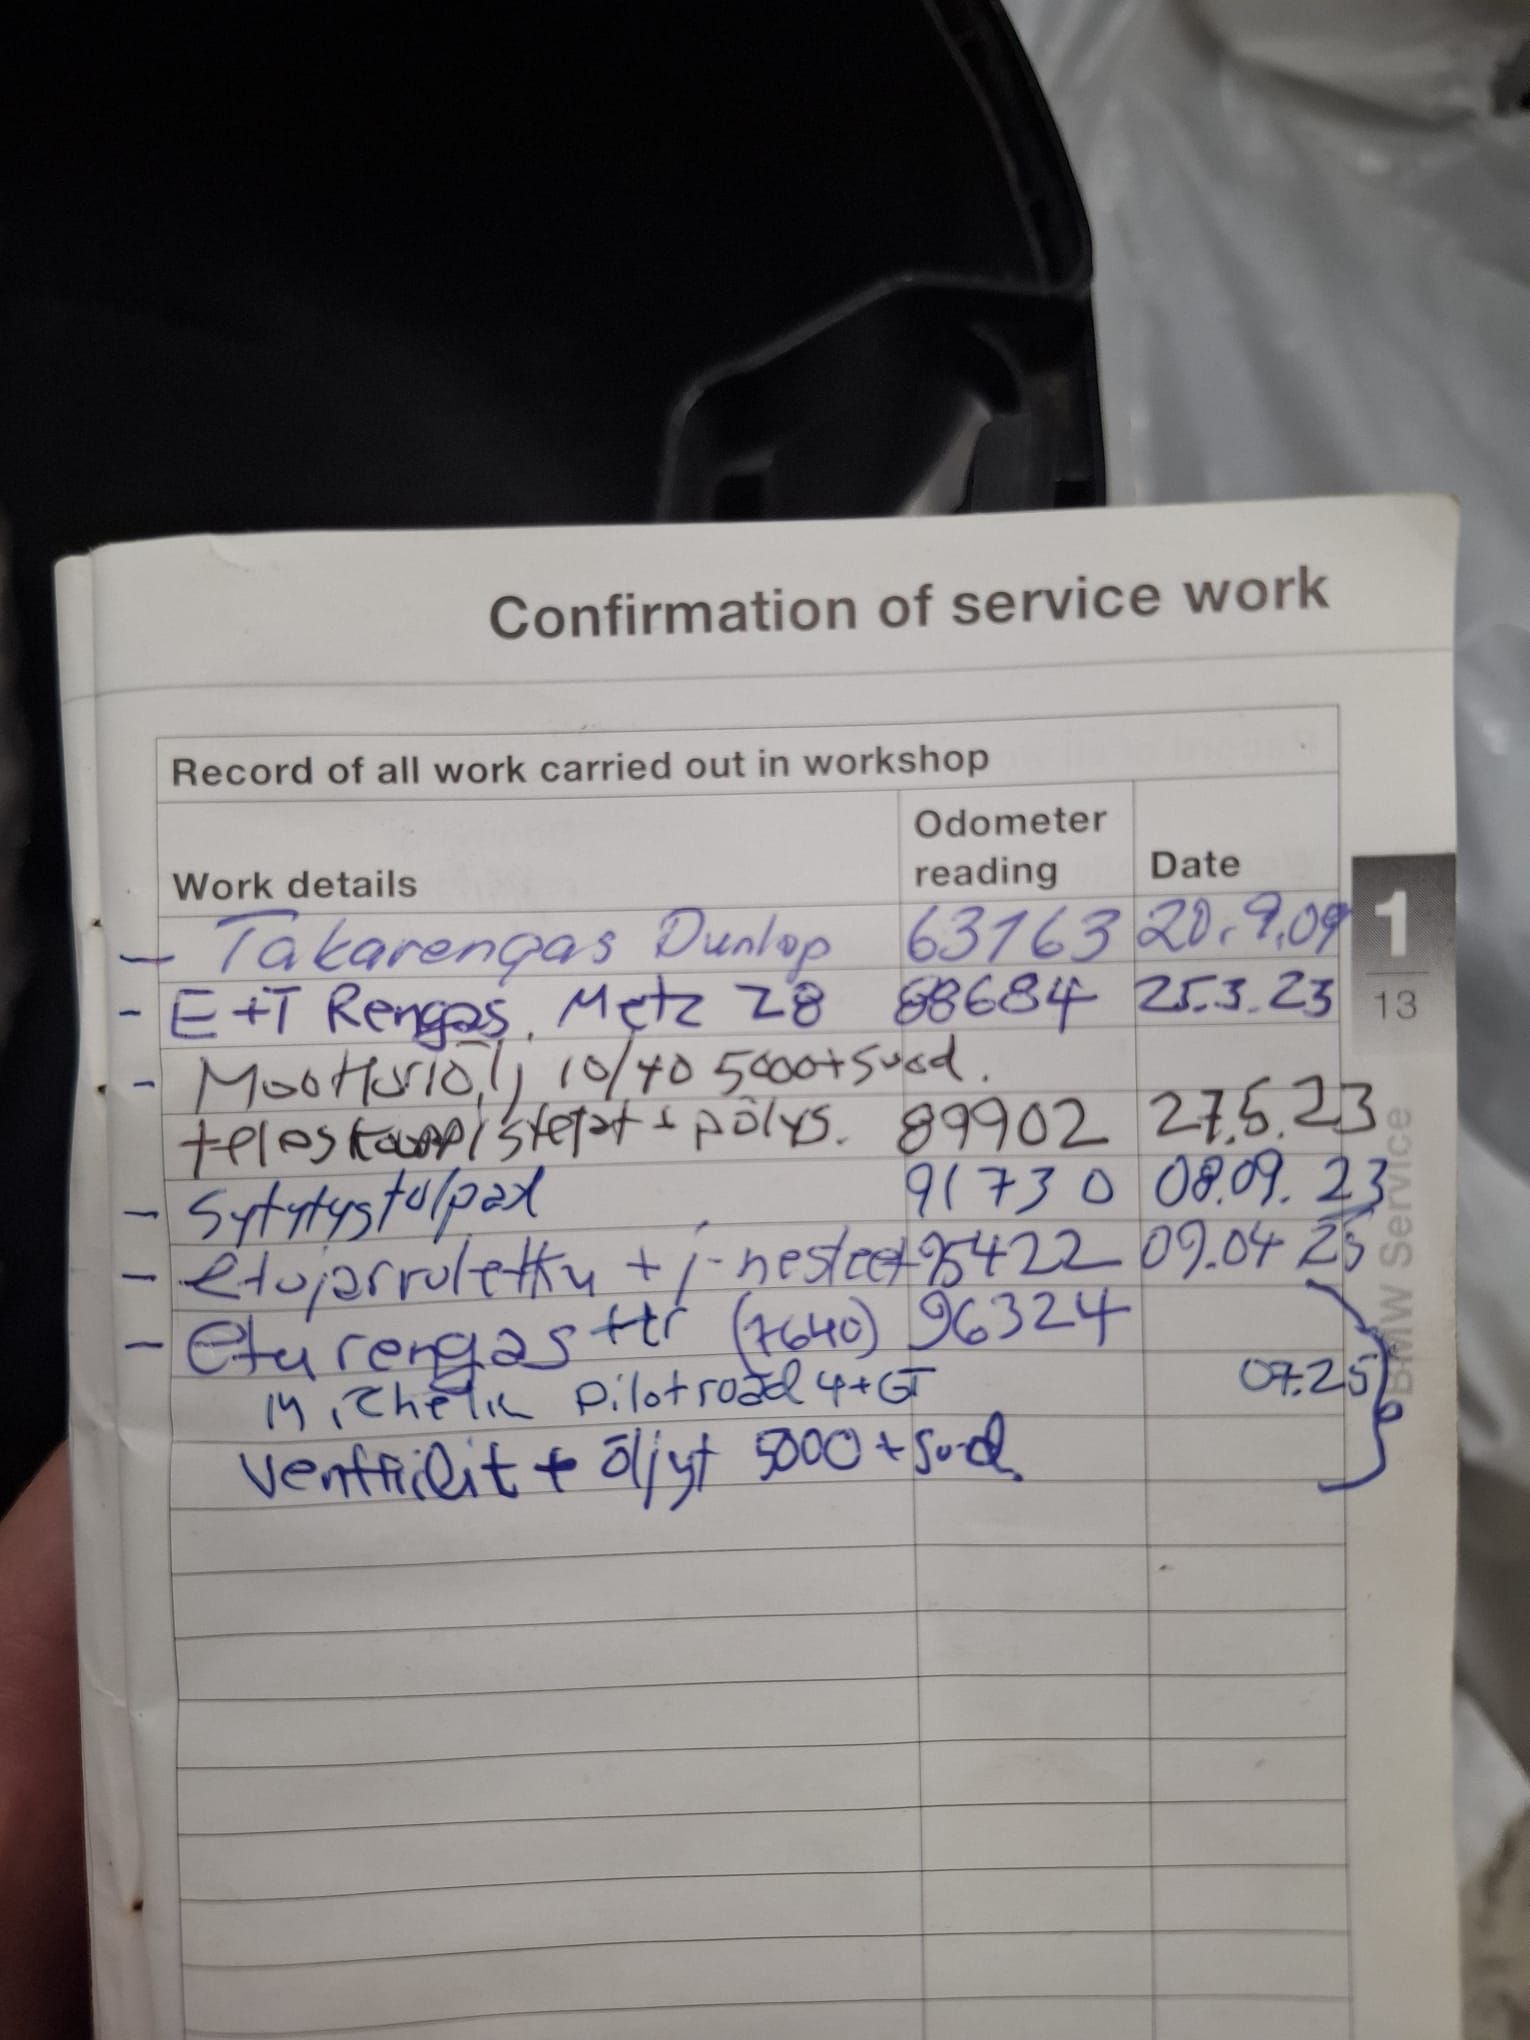 Confirmation of service work
Record of all work carried out in workshop
Work details
Odometer reading
Date
- Takarengas Dunlop 63163 20.9.09
- E+T Rengas. Metz Z8 88684 25.3.23
- Moottoriöljy 10/40 5000+Suod.
teleskooppistefat + pölys. 89902 27.5.23
- Sytytystulpat 91730 08.09.23
- etujarruletku + j-nesteet 95422 09.04 25
- Eturengas ttr (7640) 96324
Michelin Pilot road 4+GT 07.25
Venttiilit + öljyt 5000 + Suod.
1
13
BMW Service